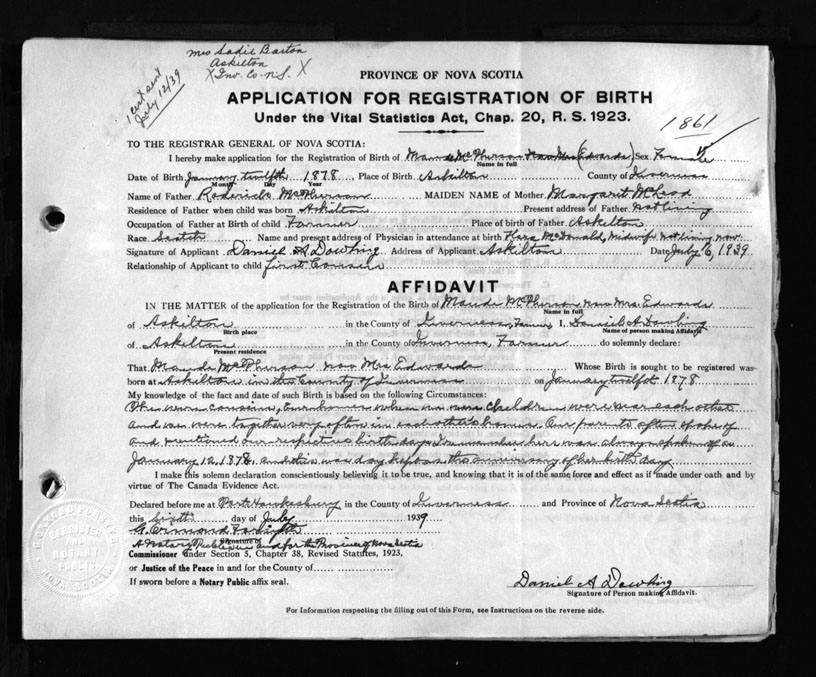 Mrs Sadie Barton
Askilton
X Inv. Co. N.S. X
1 cert sent
July 12/39
PROVINCE OF NOVA SCOTIA
APPLICATION FOR REGISTRATION OF BIRTH
Under the Vital Statistics Act, Chap. 20, R. S. 1923.
1861
TO THE REGISTRAR GENERAL OF NOVA SCOTIA:
I hereby make application for the Registration of Birth of Maude McPherson Now Mrs (Edwards) Sex Female
Name in full
Date of Birth January twelfth 1878 Place of Birth Askilton County of Inverness
Month Day Year
Name of Father Roderick McPherson MAIDEN NAME of Mother Margaret McLeod
Residence of Father when child was born Askilton Present address of Father Not living
Occupation of Father at Birth of child Farmer Place of birth of Father Askilton
Race Scotch Name and present address of Physician in attendance at birth Flora McDonald, Midwife not living now
Signature of Applicant Daniel A Dowling Address of Applicant Askilton Date July 6, 1939
Relationship of Applicant to child first Cousin
AFFIDAVIT
IN THE MATTER of the application for the Registration of the Birth of Maude McPherson now Mrs. Edwards
Name in full
of Askilton in the County of Inverness, Farmer I, Daniel A Dowling
Birth place Name of person making Affidavit
of Askilton in the County of Inverness, Farmer do solemnly declare:
Present residence
That Maude McPherson now Mrs Edwards Whose Birth is sought to be registered was
born at Askilton in the County of Inverness on January twelfth 1878
My knowledge of the fact and date of such Birth is based on the following Circumstances:
We were cousins, our homes when we were children were near each other
and we were together very often in each other's homes. Our parents often spoke of
and mentioned our respective birth days. I remember hers was always spoken of as
January 12, 1878, and this was day kept as the anniversary of her birth day
I make this solemn declaration conscientiously believing it to be true, and knowing that it is of the same force and effect as if made under oath and by
virtue of The Canada Evidence Act.
Declared before me at Port Hawkesbury in the County of Inverness and Province of Nova Scotia
this sixth day of July 1939
Signature of
A Notary Public in and for the Province of Nova Scotia
Commissioner under Section 5, Chapter 38, Revised Statutes, 1923,
or Justice of the Peace in and for the County of
If sworn before a Notary Public affix seal.
Daniel A Dowling
Signature of Person making Affidavit.
For Information respecting the filling out of this Form, see Instructions on the reverse side.
BARRISTER
AND
NOTARY
PUBLIC
NOVA SCOTIA